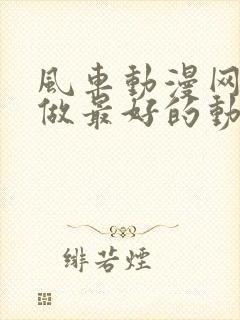 風車動漫网
做最好的動
緋若煙